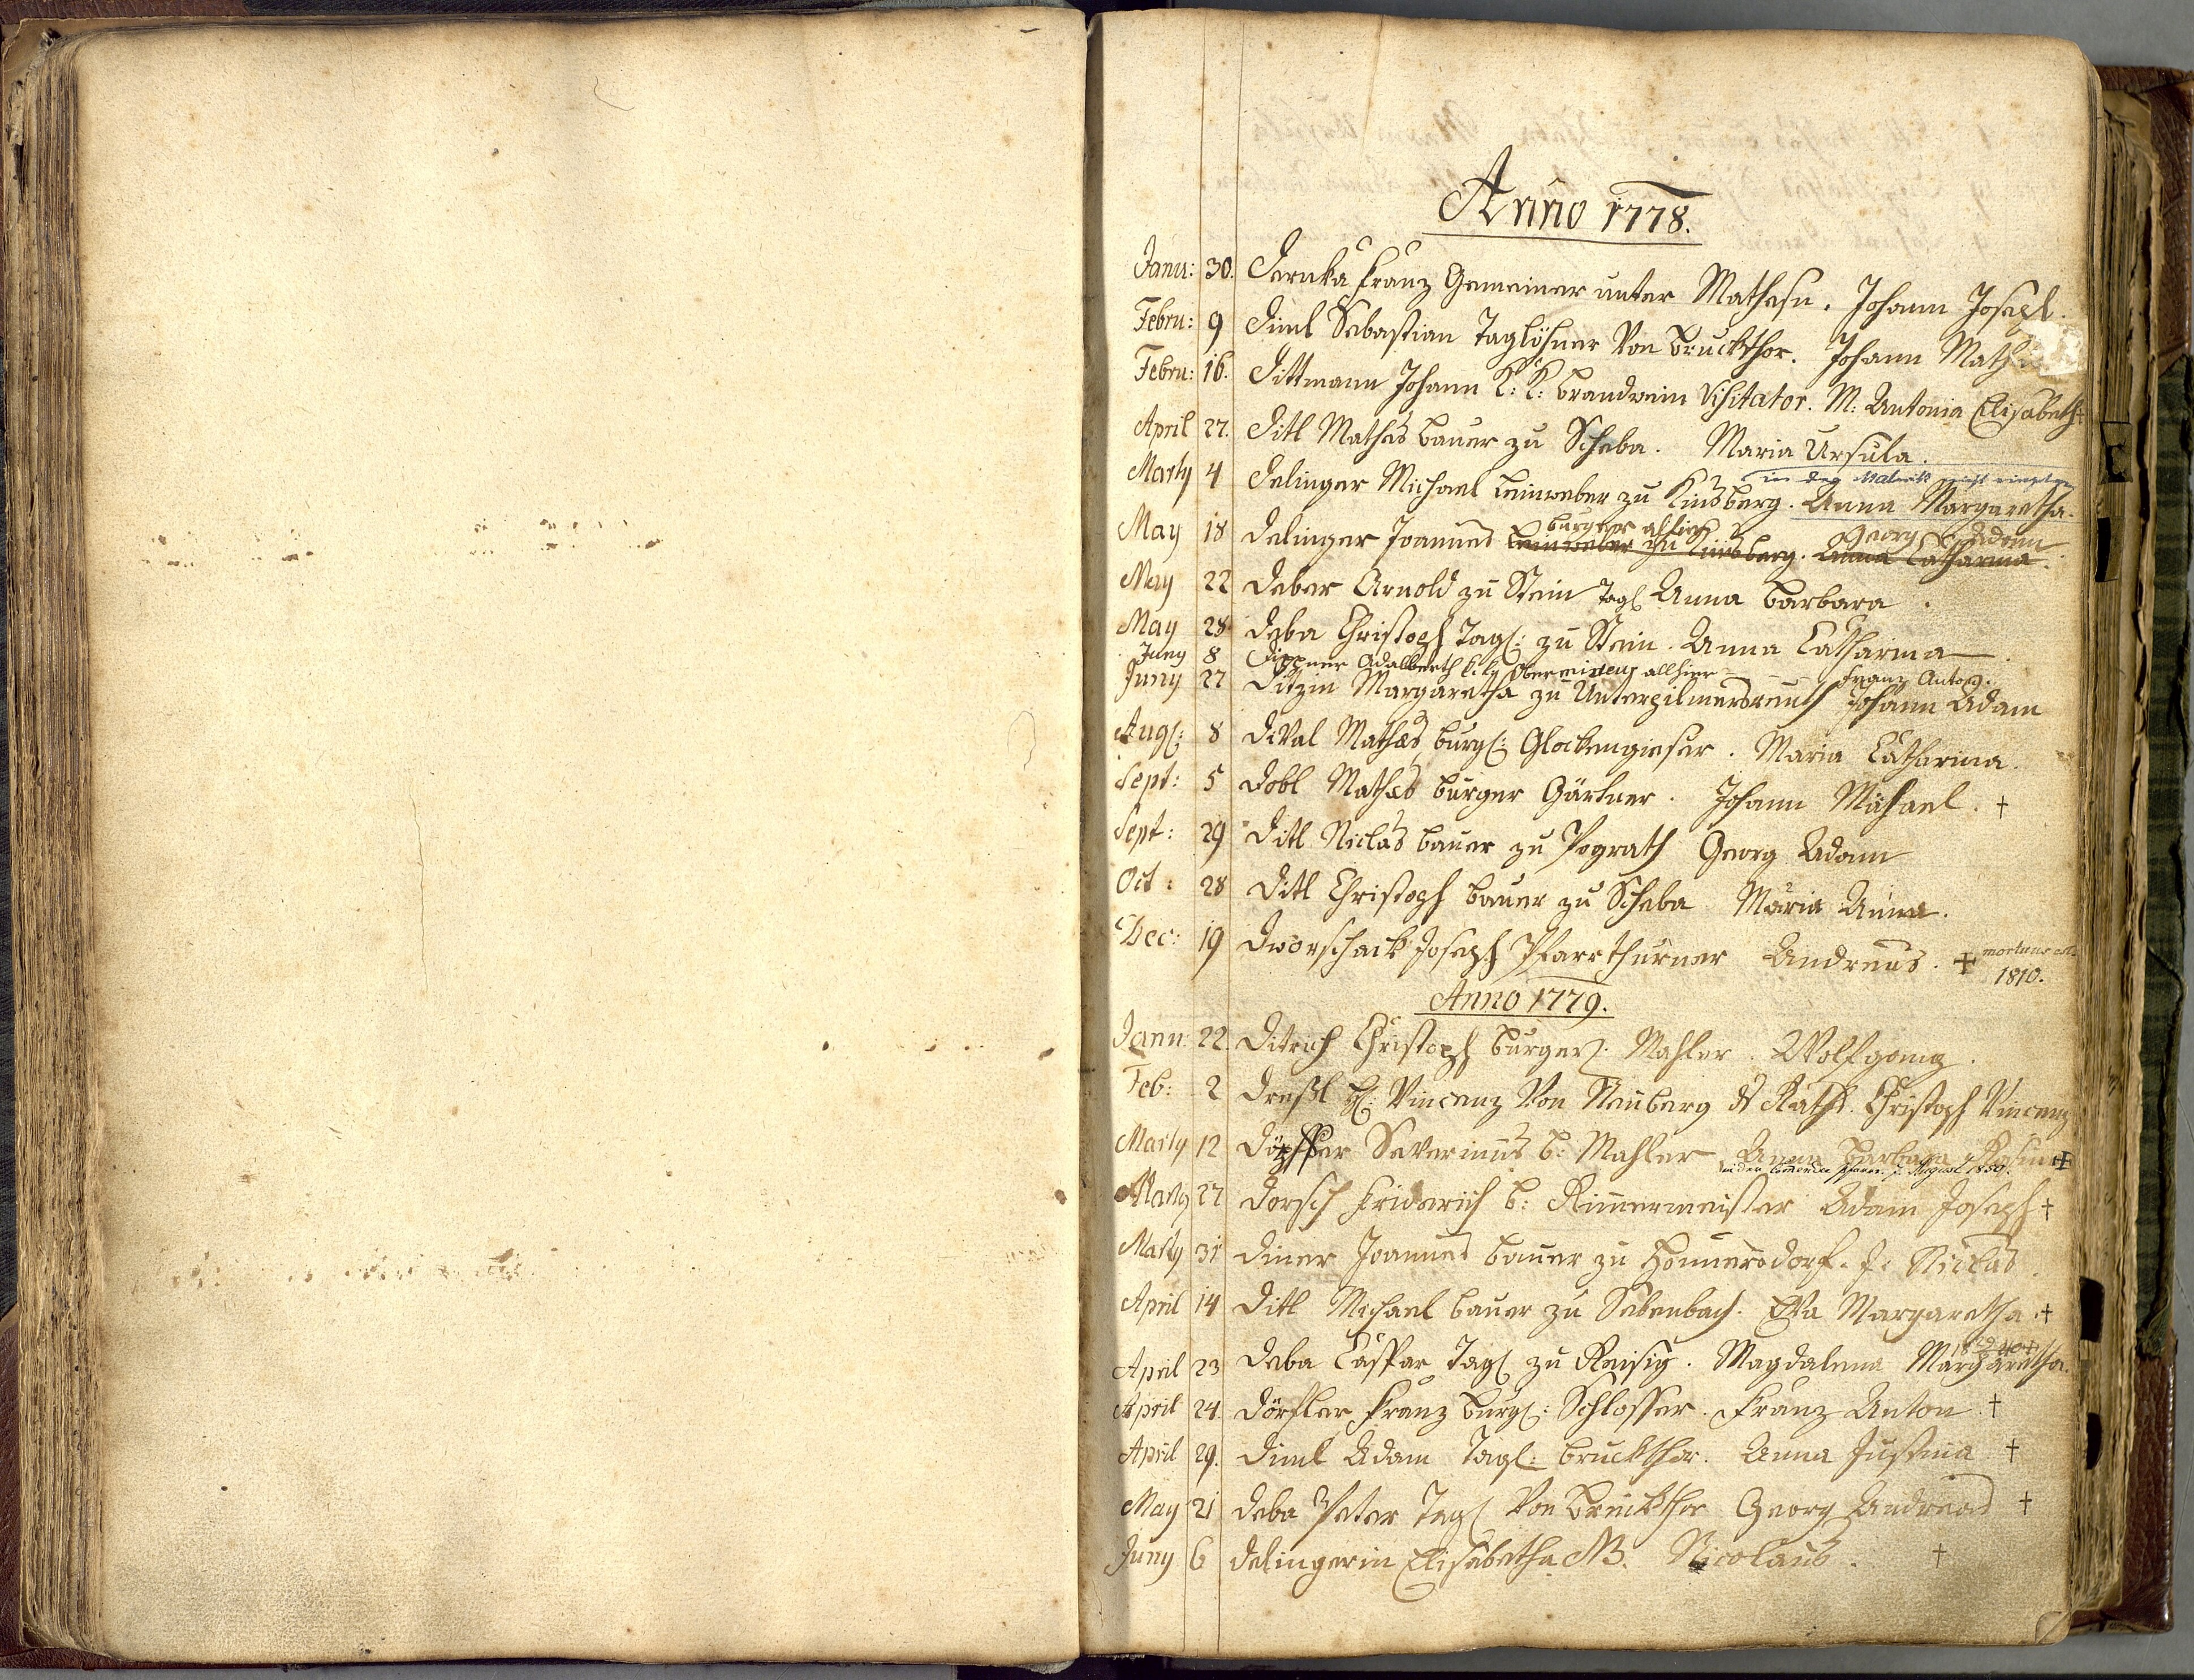 Anno 1778.
Janu: 30. Dernka Franz Gemeiner unter Mathesn. Johann Joseph.
Febru: 9 Diml Sebastian Taglöhner Von Bruckthor. Johann Math
Febru: 16. Dittmann Johann K: K: brandwein Visitator. M: Antonia Elisabeth
April 27. Ditl Mathes baur zu Scheba. Maria Ursula.
in der Matrik nicht
Marty 4 Delinger Michael Leinweber zu Kinsberg. Anna Margaretha.
burger allhier Georg Adam
May 18 Delinger Joannes Leinweber zu Kinsberg. Anna Catharina.
May 22 Deber Arnold zu Stein Tagl Anna Barbara.
May 28 Deba Christoph Tagl: zu Stein. Anna Catharina.
Juny 8 Dippner Adalberth allhier Franz Anton.
Juny 27 Ditzin Margaretha zu Unterpilmersreuth Johann Adam
Augl: 8 DeVal Mathes burgl: Glockengieser. Maria Catharina.
Sept: 5 Dobl Mathes burger Gärtner. Johann Michael. †
Sept: 29 Ditl Niclas baur zu Pograth Georg Adam
Oct: 28 Ditl Christoph baur zu Scheba Maria Anna.
Dec: 19 Dworschack Joseph Pfarrthurner Andreas. ✠ mortuus est
1810.
Anno 1779.
Janu: 22. Ditrich Christoph burgerl: Mahler. Wolfgang.
Feb: 2 Dreßl H: Vincenz Von Neuberg ds Raths. Christoph Vincenz
Marty 12 Döpffer Severinus b: Mahler Anna Barbara Rosina ✠
August 1850.
Marty 27 Dorsch Friderich b: Rimermeister Adam Joseph †
Marty 31 Diner Joannes baur zu Honnersdorf. J. Niclas.
April 14 Ditl Michael baur zu Sebenbach. Eva Margaretha. †
April 23 Deba Caspar Tagl zu Reisig. Magdalena Margaretha.
April 24. Dörfler Franz burgl: Schlosser. Franz Anton †
April 29. Diml Adam Tagl: bruckthor. Anna Justina †
May 21 Deba Peter Tagl Von Bruckthor Georg Andreas †
Juny 6 Delingerin Elisabetha NB. Nicolaus. †